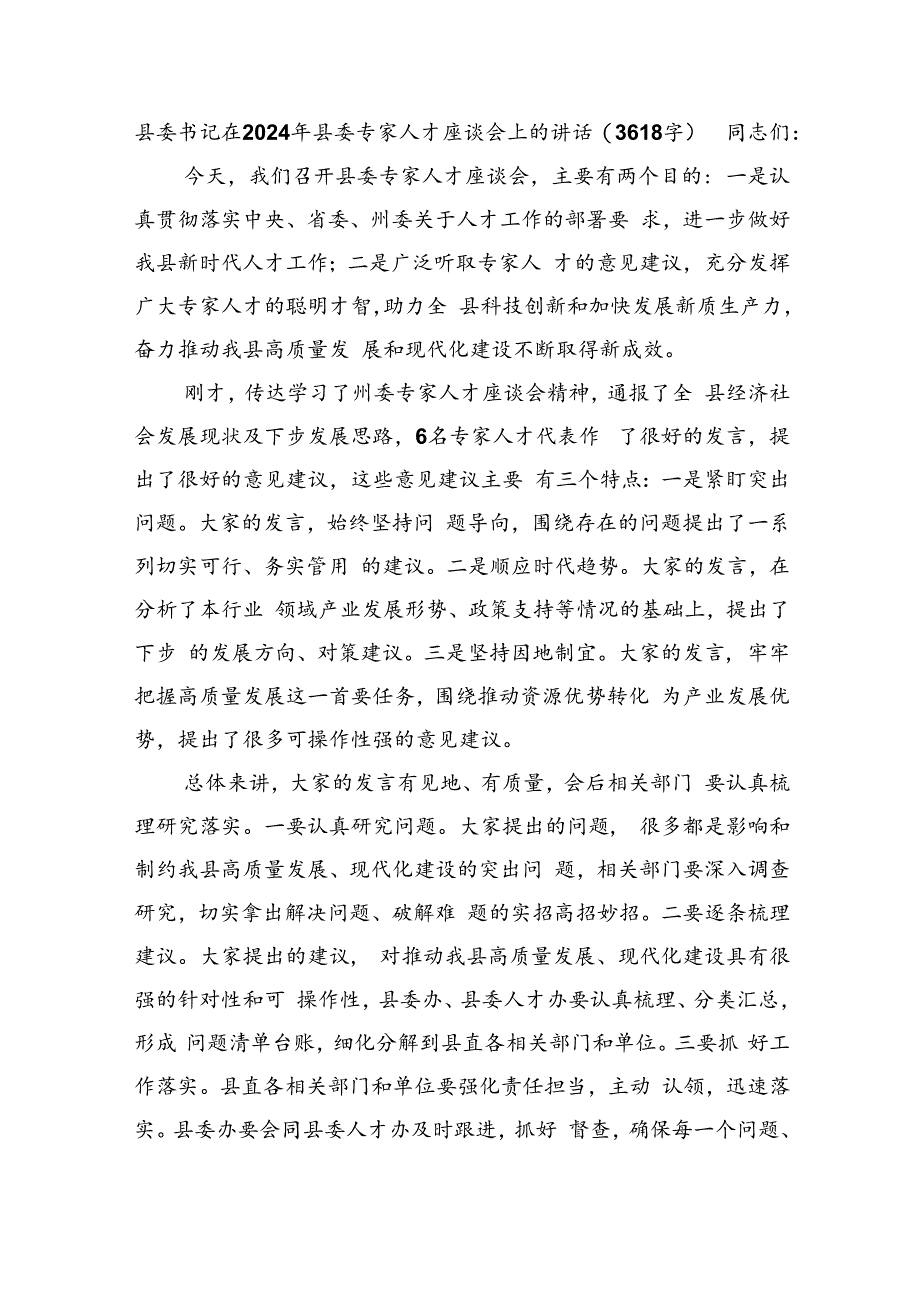 县委书记在2024年县委专家人才座谈会上的讲话（3618字） 同志们：
今天，我们召开县委专家人才座谈会，主要有两个目的：一是认
真贯彻落实中央、省委、州委关于人才工作的部署要 求，进一步做好
我县新时代人才工作；二是广泛听取专家人 才的意见建议，充分发挥
广大专家人才的聪明才智，助力全 县科技创新和加快发展新质生产力，
奋力推动我县高质量发 展和现代化建设不断取得新成效。
刚才，传达学习了州委专家人才座谈会精神，通报了全 县经济社
会发展现状及下步发展思路，6名专家人才代表作 了很好的发言，提
出了很好的意见建议，这些意见建议主要 有三个特点：一是紧盯突出
问题。大家的发言，始终坚持问 题导向，围绕存在的问题提出了一系
列切实可行、务实管用 的建议。二是顺应时代趋势。大家的发言，在
分析了本行业 领域产业发展形势、政策支持等情况的基础上，提出了
下步 的发展方向、对策建议。三是坚持因地制宜。大家的发言，牢牢
把握高质量发展这一首要任务，围绕推动资源优势转化 为产业发展优
势，提出了很多可操作性强的意见建议。
总体来讲，大家的发言有见地、有质量，会后相关部门 要认真梳
理研究落实。一要认真研究问题。大家提出的问题， 很多都是影响和
制约我县高质量发展、现代化建设的突出问 题，相关部门要深入调查
研究，切实拿出解决问题、破解难 题的实招高招妙招。二要逐条梳理
建议。大家提出的建议， 对推动我县高质量发展、现代化建设具有很
强的针对性和可 操作性，县委办、县委人才办要认真梳理、分类汇总，
形成 问题清单台账，细化分解到县直各相关部门和单位。三要抓 好工
作落实。县直各相关部门和单位要强化责任担当，主动 认领，迅速落
实。县委办要会同县委人才办及时跟进，抓好 督查，确保每一个问题、